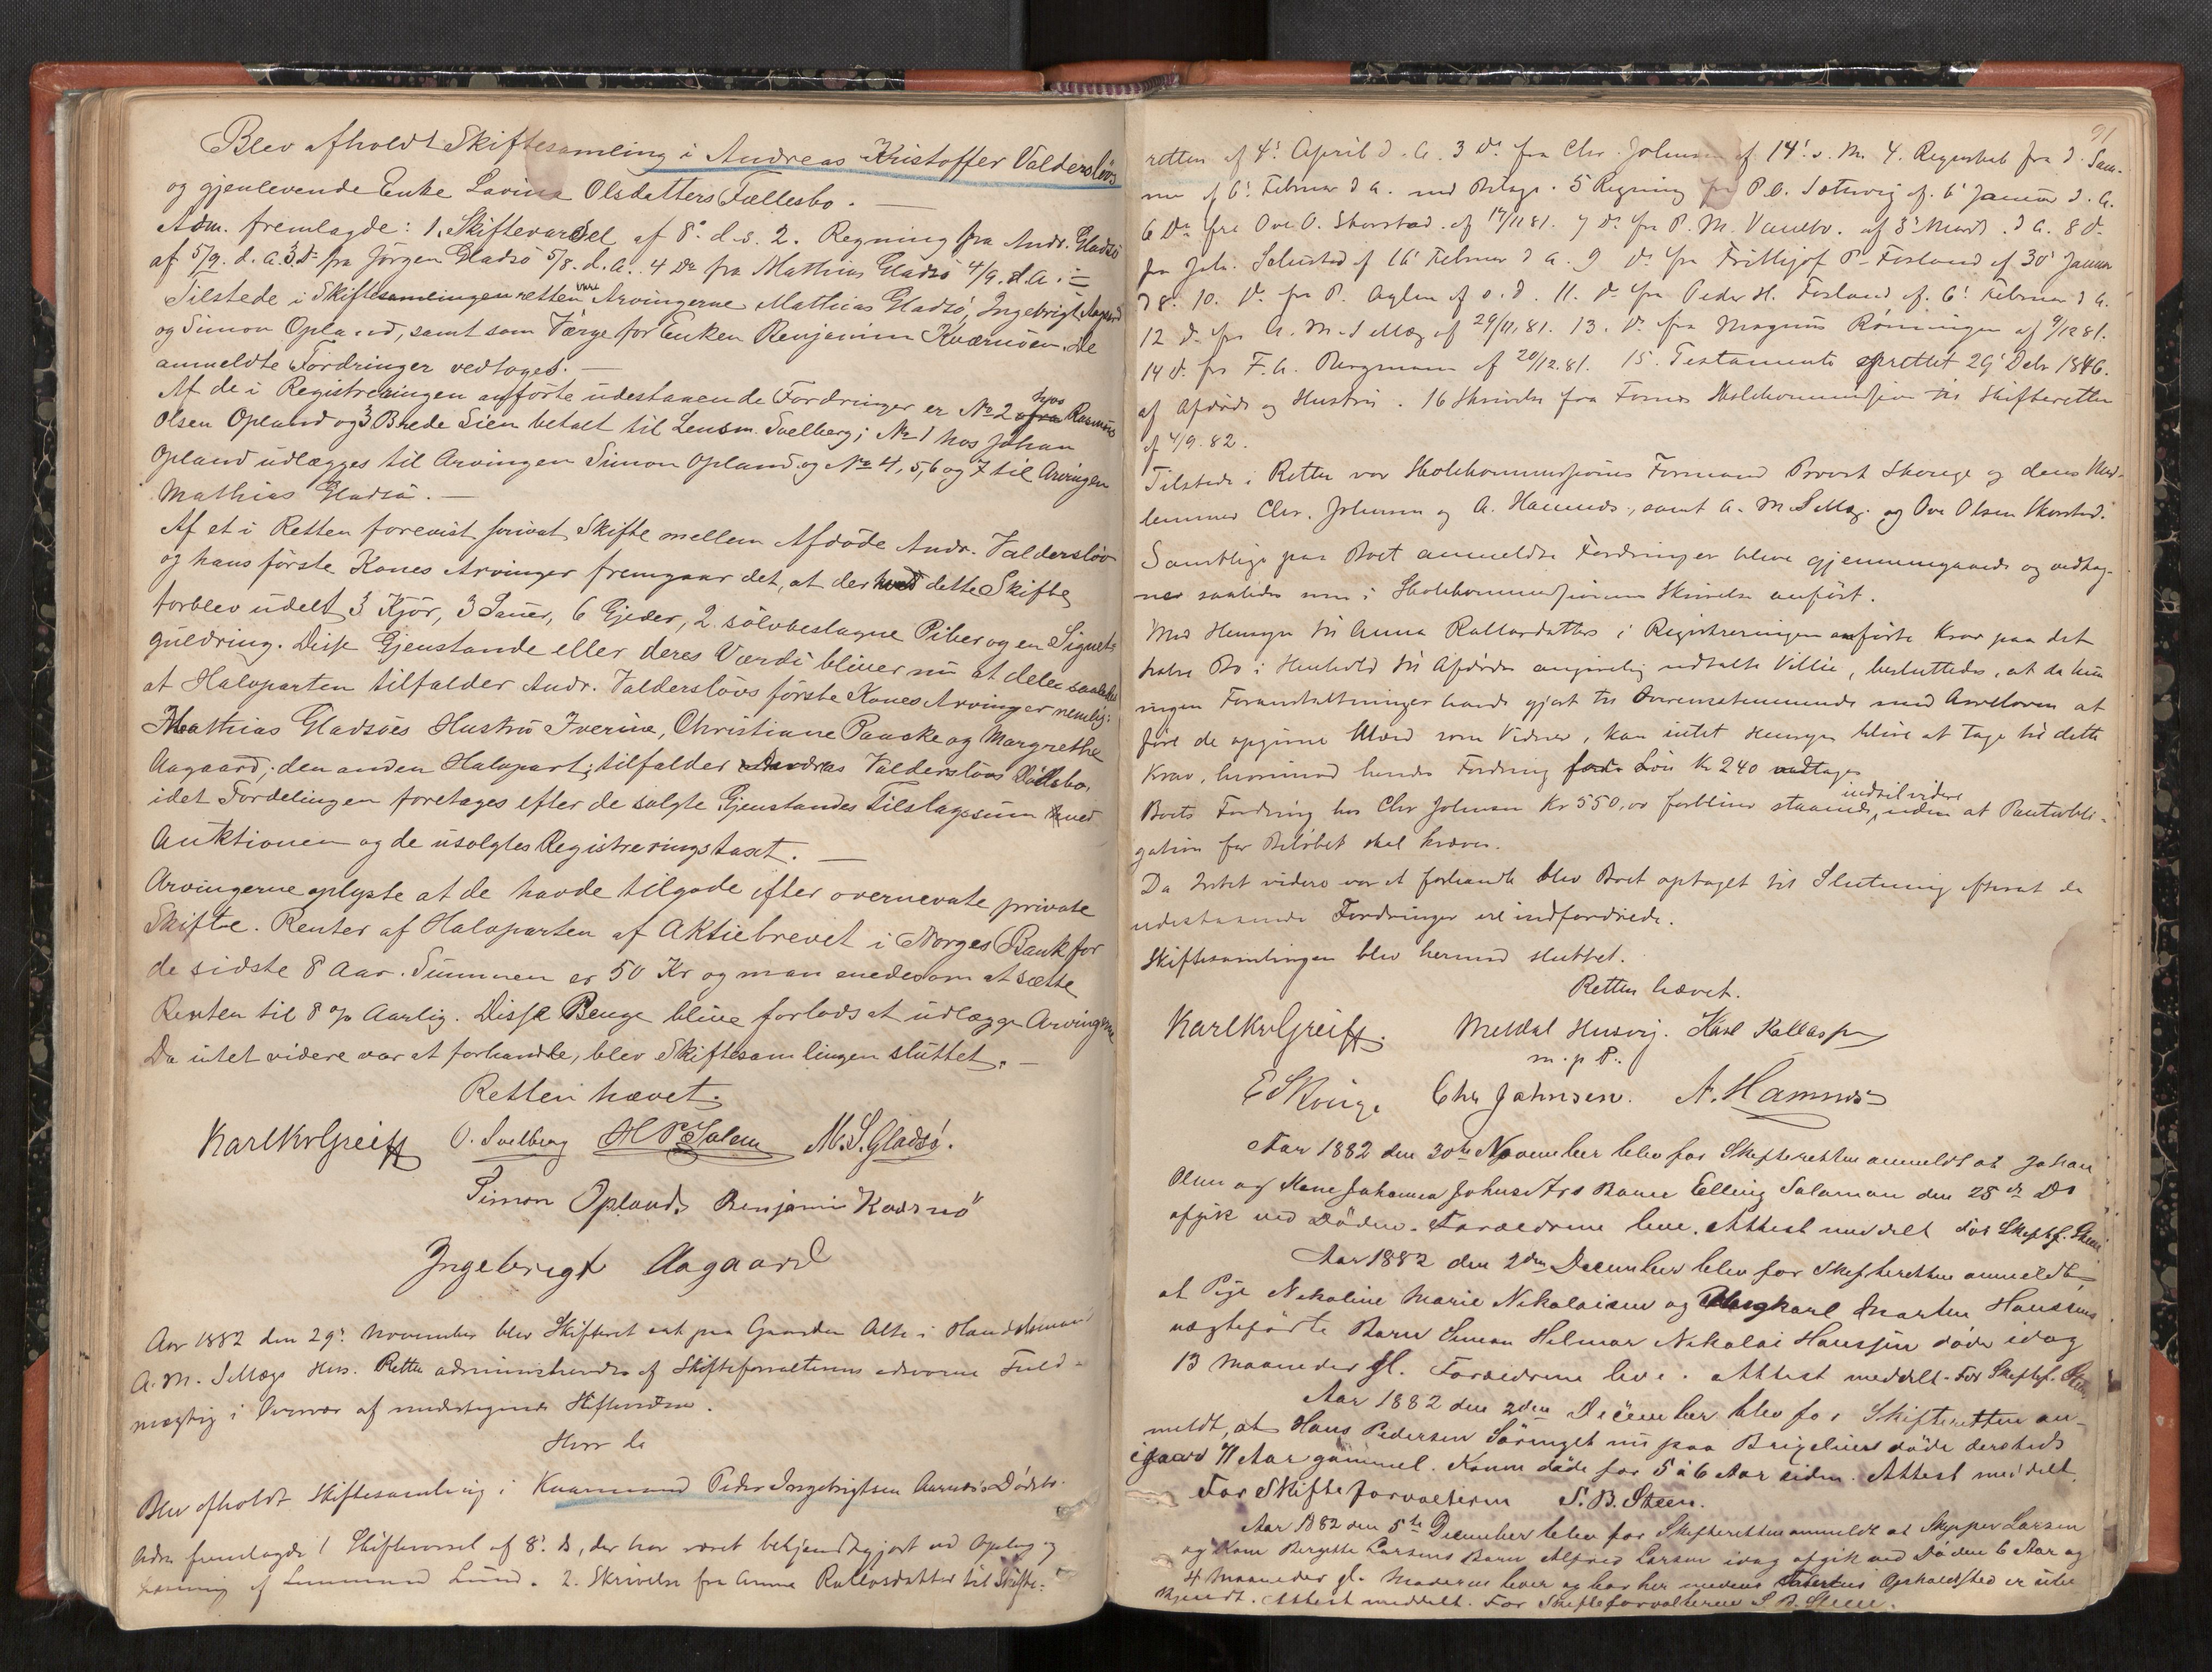 Blev afholdt Skiftesamling i Andreas Kristoffer Valderslövs
og gjenlevende Enke Lavina Olsdatters Fællesbo. —
Adm. fremlagde: 1. Skiftevarsel af 8de d.s. 2. Regning fra Andr. Gladsö
af 5/9. d. a. 3. Do fra Jörgen Gladsö 5/8. d. a. 4 Do fra Mathias Gladsö 4/9. d.a.
Tilstede i Skiftesamlingen retten vare Arvingerne Mathias Gladsö, Ingebrigt Aagaard
og Simon Opland, samt som Værge for Enken Benjamin Kværnöen. De
anmeldte Fordringer vedtoges. —
Af de i Registreringen anförte udestaaende Fordringer er No 2 hos Rasmus
Olsen Opland og 3 Brede Sien betalt til Lensm. Svelberg; No 1 hos Johan
Opland udlægges til Arvingen Simon Opland og No 4, 5, 6 og 7 til Arvingen
Mathias Gladsö. —
Af et i Retten forevist privat Skifte mellem Afdöde Andr. Valderslöv
og hans förste Kones Arvinger fremgaar det, at der ved dette Skifte
forblev udelt 3 Kjör, 3 Sauer, 6 Gjeder, 2 sölvbeslagne Piber og en Signet-
guldring. Disse Gjenstande eller deres Værdi bliver nu at dele saaledes
at Halvparten tilfalder Andr. Valderslövs förste Kones Arvinger nemlig:
Mathias Gladsöes Hustru Iverine, Christiane Paacke og Margrethe
Aagaard; den anden Halvpart tilfalder Andreas Valderslövs Dödsbo,
idet Fordelingen foretages efter de solgte Gjenstandes Tilslagssum ved
Auktionen og de usolgtes Registreringstaxt. —
Arvingerne oplyste at de havde tilgode efter overnevnte private
Skifte. Renter af Halvparten af Aktiebrevet i Norges Bank for
de sidste 8 Aar. Summen er 50 Kr og man enedes om at sætte
Renten til 8 % Aarlig. Disse Penge blive forlods at udlægge Arvingerne
Da intet videre var at forhandle, blev Skiftesamlingen sluttet. —
Retten hævet.
Karl Kv Greiff O. Svelberg M. S. Gladsö.
Simon Opland. Benjamin Kværnö
Ingebrigt Aagaard
Aar 1882 den 29de November blev Skifteret sat paa Gaarden Alte i Handelsmand
A. M. Hus. Retten administreredes af Skifteforvalterens edsvorne Fuld-
mægtig i Overvær af undertegnede Skiftevidner.
Hvor da
Blev afholdt Skiftesamling i Kvarmand Peder Ingebrigtsen Aarnes Dødsbo.
Adm fremlagde 1 Skiftevarsel af 8de ds, der har været bekjendtgjort ved Opslag og
læsning af Lensmand Lund. 2. Skrivelse fra Anna Rallarsdatter til Skifte-
91
retten af 4de April d. A. 3 do fra Chr. Johnsen af 14de s. M. 4. Regnskab fra d. Sam-
me af 6te Februar d A. med Bilage. 5 Regning fra P. O. af 6te Januar d. A.
6 Do fra Ove O. Skorstad af 17/11 81. 7 do fra P. M. Vanebo. af 8de Marts d A. 8 do
fra Joh. af 16de Februar d A. 9 do fra Frithjof P. Fosland af 30te Januar
d A. 10. do fra P. Aglen af s. d. 11. do fra Peder H. Fosland af 6te Februar d A.
12 do fra A. M. af 29/11 81. 13. do fra Magnus Rönningen af 9/12 81.
14 do fra F. A. Bergmann af 20/12.81. 15. Testamente oprettet 29de Debr 1846.
af Afdöde og Hustru. 16 Skrivelse fra Fosnes Skolekommission til Skifteretten
af 4/9. 82.
Tilstede i Retten var Skolekommissionens Formand Provst Skouge og dens Med-
lemmer Chr. Johnsen og A. Hamnes, samt A. M. og Ove Olsen Skorstad.
Samtlige paa Boet anmeldte Fordringer bleve gjennemgaaede og vedtag-
ner saaledes som i Skolekommissionens Skrivelse anfört.
Med Hensyn til Anna Rallarsdatters i Registreringen anförte Krav paa det
halve Bo i Henhold til Afdödes angivelig udtalte Villie, besluttedes, at da hun
ingen Foranstaltninger havde gjort til Overensstemmende med Arveloven at
före de opgivne Mænd som Vidner, kan intet Hensyn blive at tage til dette
Krav, hvorimod hendes Fordring for Lön Kr 240 vedtages
Boets Fordring hos Chr Johnsen Kr 550,00 forbliver staaende indtil videre, uden at Pantobli-
gation for Beløbet skal kræves.
Da Intet videre var at forhandle blev Boet optaget til Slutning efterat de
udestaaende Fordringer ere indfordrede.
Skiftesamlingen blev hermed sluttet.
Retten hævet.
Karl Kv Greiff. Meldal Husvig. Karl Rallassen
m. p. P.
E Skouge Chr Johnsen. A. Hamnes
Aar 1882 den 30te November blev for Skifteretten anmeldt at Johan
Olsen og Kone Johanna Johnsdatters Barn Elling Salamon den 25de Ds
afgik ved Døden. Forældrene leve. Attest meddelt For Skiftef. Steen
Aar 1882 den 2den December blev for Skifteretten anmeldt,
at Pige Nikoline Marie Nikolaisen og Ungkarl Marten Hanssens
uægtefödte Barn Simon Hilmar Nikolai Hanssen döde idag
13 Maaneder gl. Forældrene leve. Attest meddelt. For Skiftef. Steen
Aar 1882 den 2den December blev for Skifteretten an-
meldt, at Hans Pedersen nu paa döde dersteds
igaar 71 Aar gammel. Konen döde for 5 à 6 Aar siden. Attest meddelt.
For Skifteforvalteren S. B. Steen.
Aar 1882 den 5te December blev for Skifteretten anmeldt at Skipper Larsen
og Kone Bergitte Larsens Barn Alfred Larsen idag afgik ved Döden 6 Aar og
4 Maaneder gl. Moderen lever og bor her medens Faderens Opholdssted er ube-
kjendt. Attest meddelt. For Skifteforvalteren S. B. Steen.